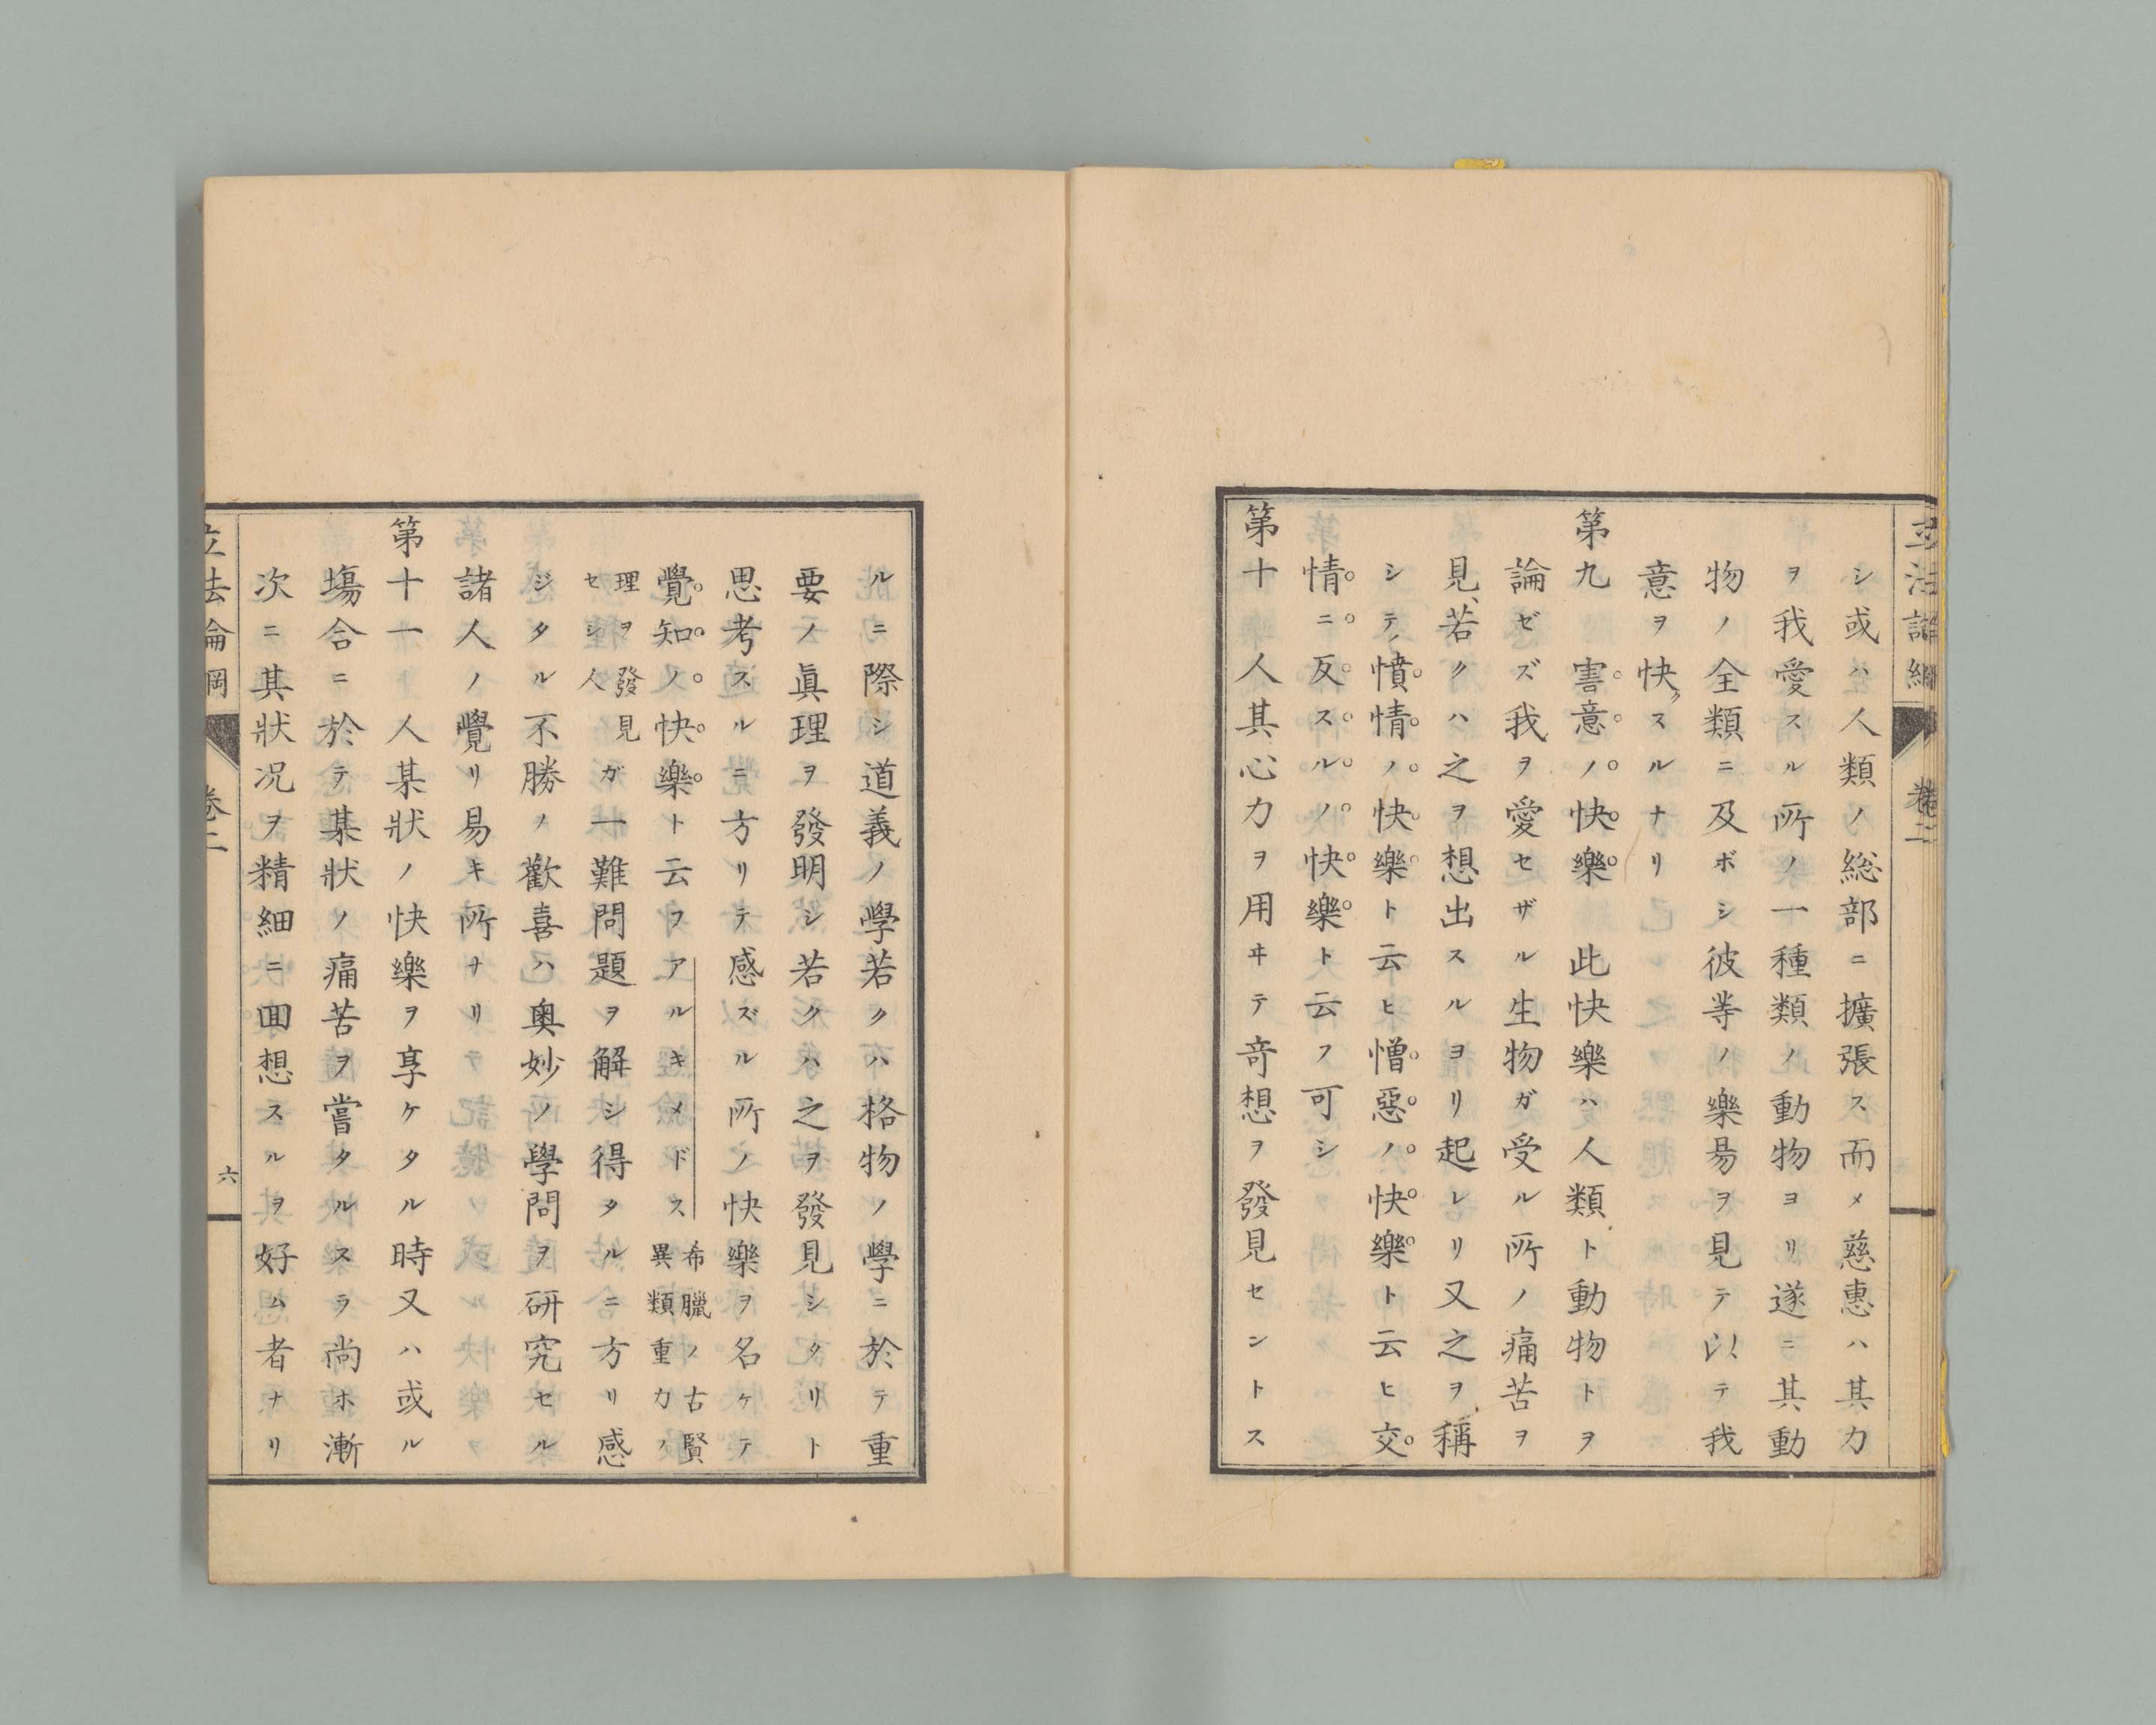 立法論綱 卷二
シ或ハ人類ノ総部ニ擴張ス而メ慈惠ハ其力
ヲ我愛スル所ノ一種類ノ動物ヨリ遂ニ其動
物ノ全類ニ及ボシ彼等ノ樂易ヲ見テ以テ我
意ヲ快クスルナリ
第九 害意ノ快樂 此快樂ハ人類ト動物トヲ
論ゼズ我ヲ愛セザル生物ガ受ル所ノ痛苦ヲ
見、若クハ之ヲ想出スルヨリ起レリ又之ヲ稱
シテ、憤情ノ快樂ト云ヒ憎惡ノ快樂ト云ヒ交
情ニ反スルノ快樂ト云フ可シ
第十 人其心力ヲ用ヰテ奇想ヲ發見セントス
ルニ際シ道義ノ學若クハ格物ノ學ニ於テ重
要ノ眞理ヲ發明シ若クハ之ヲ發見シタリト
思考スルニ方リテ感ズル所ノ快樂ヲ名ケテ
覺知ノ快樂ト云フアルキメドス希臘ノ古賢異類重力ノ
理ヲ發見セシ人ガ一難問題ヲ解シ得タルニ方リ感
ジタル不勝ノ歡喜ハ奥妙ノ學問ヲ研究セル
諸人ノ覺リ易キ所ナリ
第十一 人某狀ノ快樂ヲ享ケタル時又ハ或ル
塲合ニ於テ某狀ノ痛苦ヲ嘗タルスラ尚ホ漸
次ニ其狀况ヲ精細ニ囬想スルヲ好ム者ナリ
立法論綱 卷二 六